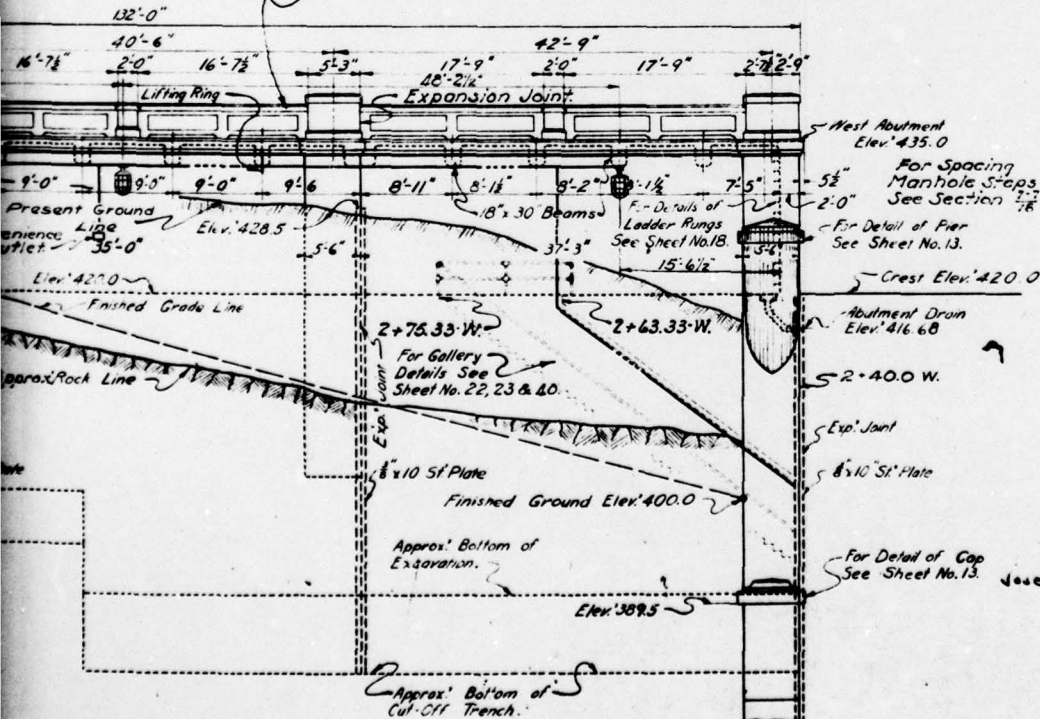 132'-0"
40'-6"
42'-9"
16'-7½"
2'-0"
16'-7½"
5'-3"
17'-9"
2'-0"
17'-9"
2'-9"
48'-2½"
Lifting Ring
Expansion Joint.
West Abutment
Elev. 435.0
For Spacing
Manhole Steps
See Section
9'-0"
9'-0"
9'-0"
9'-6
8'-11"
8'-1½"
8'-2"
7'-5"
5½"
2'-0"
Present Ground
Line
Elev. 428.5
18" x 30" Beams
For Details of
Ladder Rungs
See Sheet No. 18.
For Detail of Pier
See Sheet No. 13.
35'-0"
5'-6"
37'-3"
15'-6½"
Elev. 420.0
Crest Elev. 420.0
Finished Grade Line
2+75.33 W.
2+63.33 W.
Abutment Drain
Elev. 416.68
For Gallery
Details See
Sheet No. 22, 23 & 40.
2+40.0 W.
Approx. Rock Line
Exp. Joint
Exp. Joint
x 10 St. Plate
x 10" St. Plate
Finished Ground Elev. 400.0
Approx. Bottom of
Excavation.
For Detail of Cap
See Sheet No. 13.
Elev. 389.5
Approx. Bottom of
Cut-Off Trench.